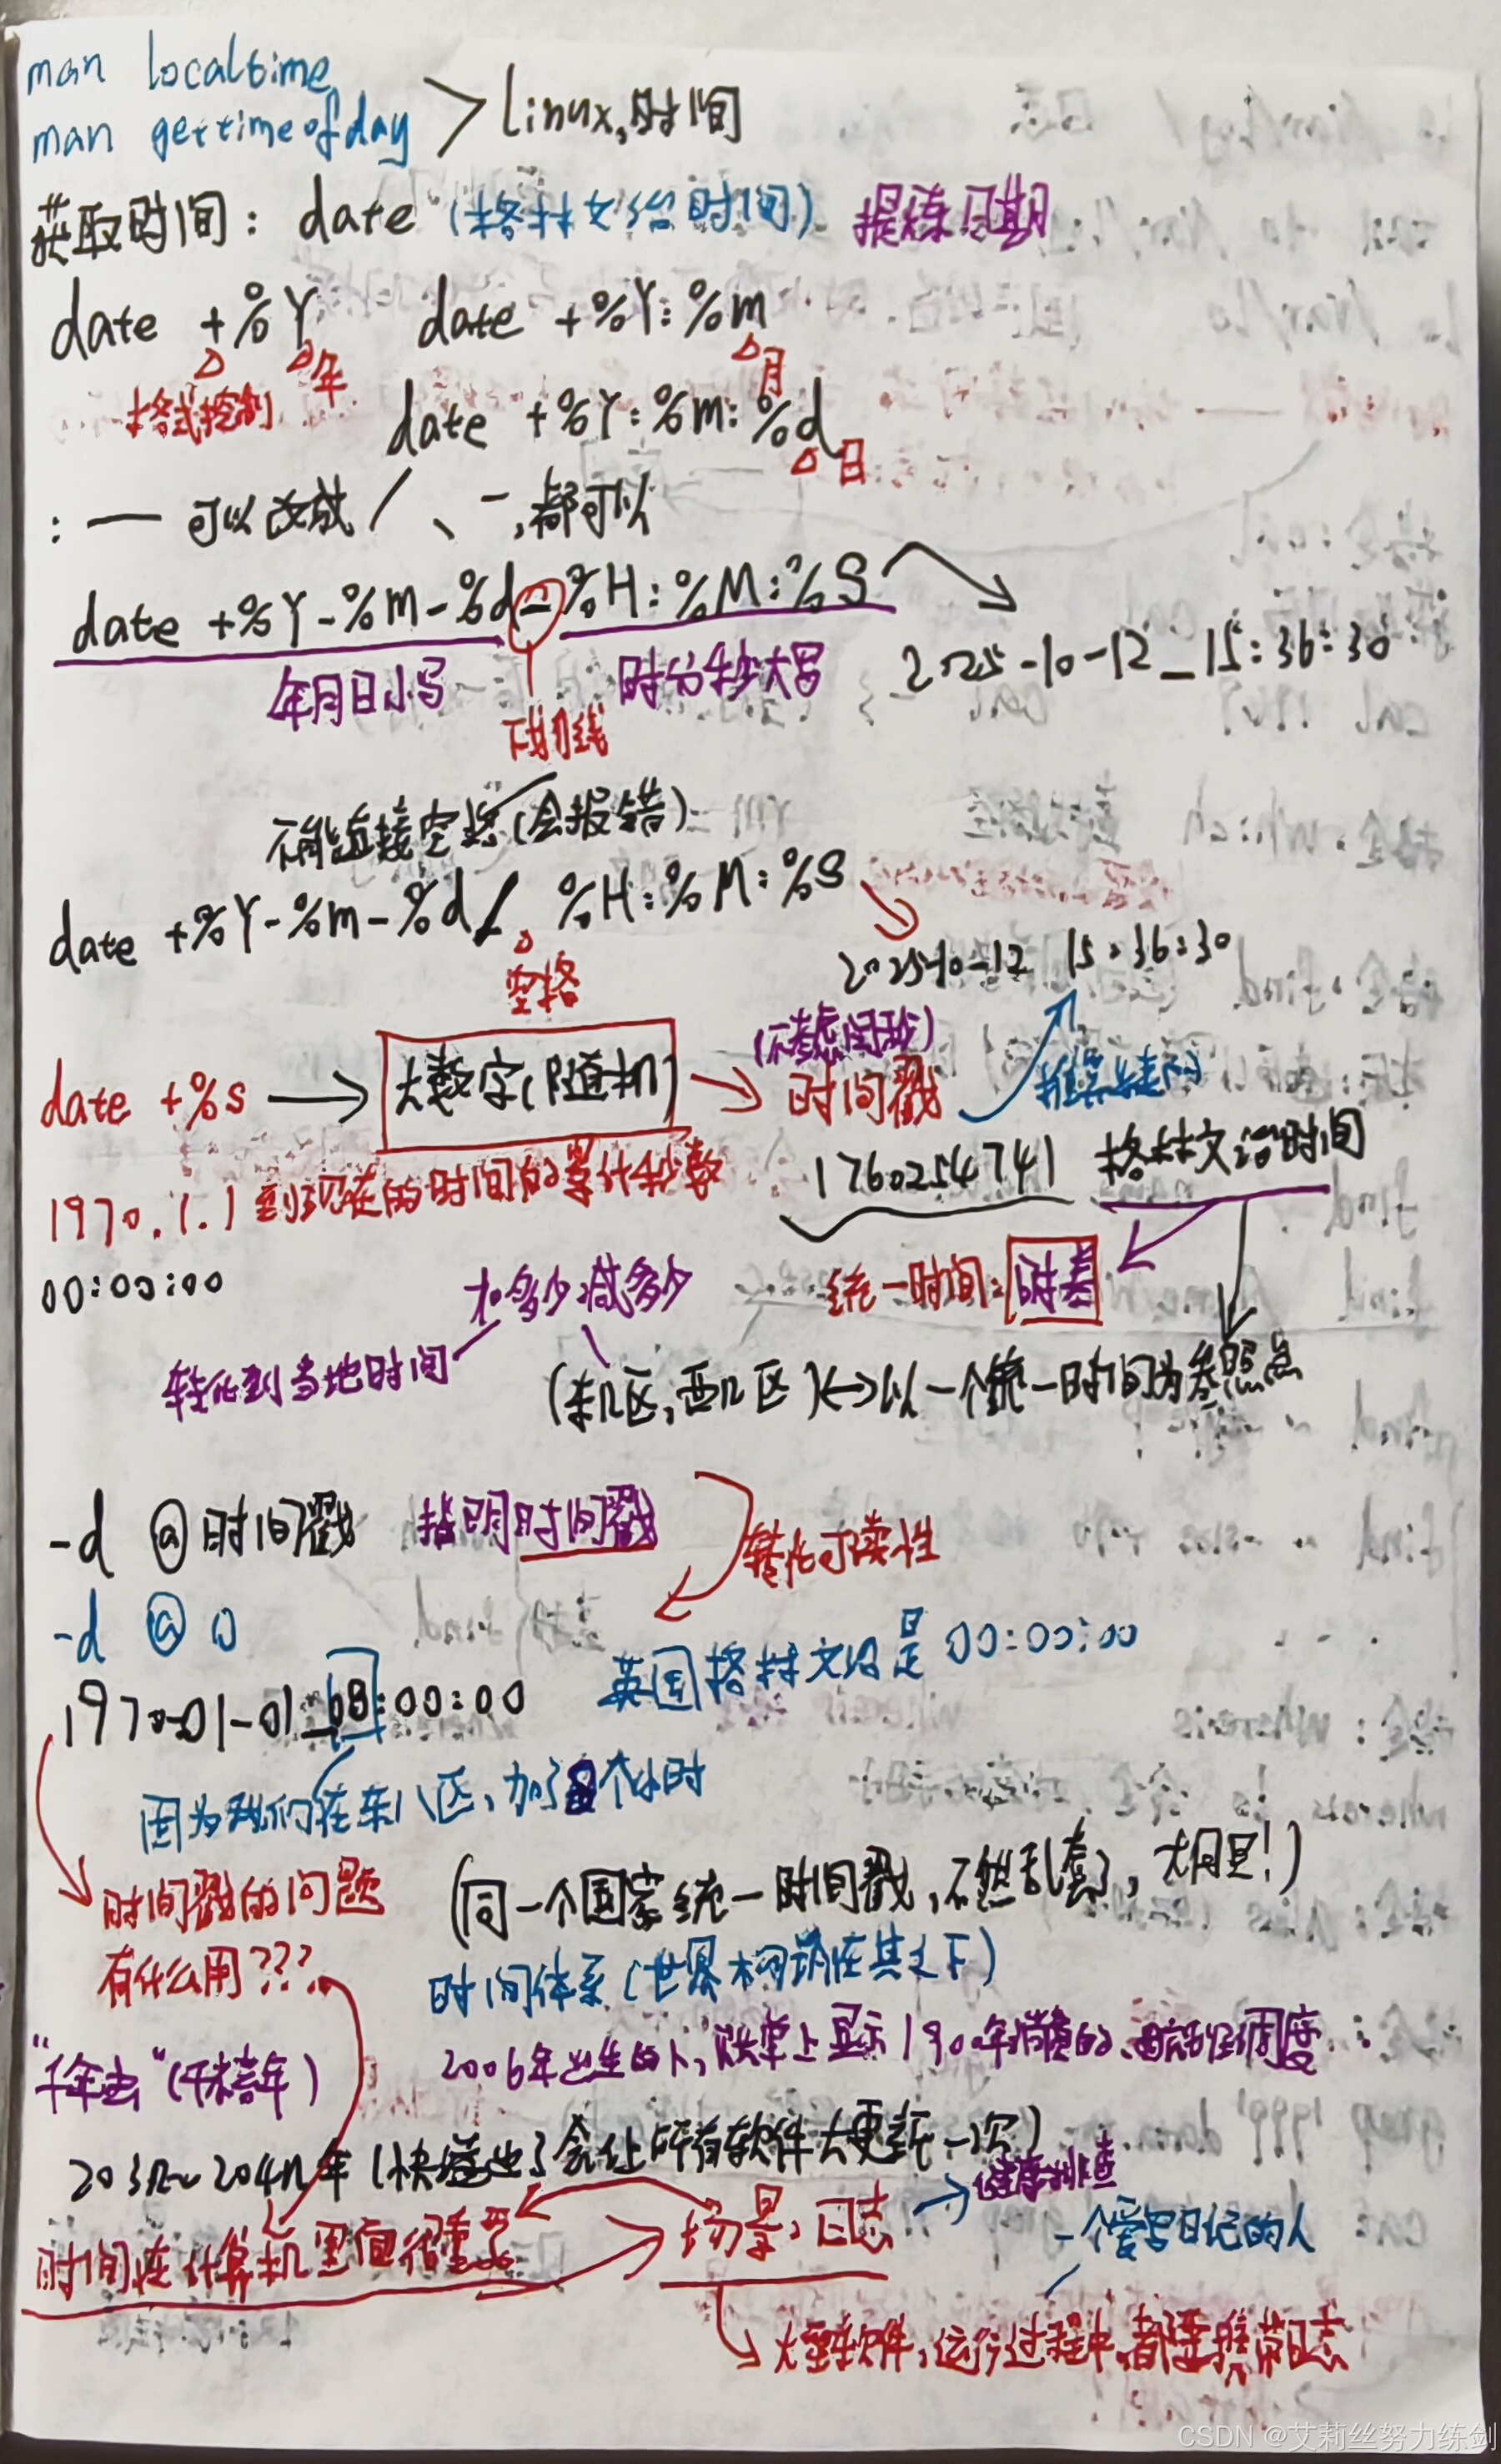 man localtime
man gettimeofday > linux,时间
获取时间: date (格林女治时间) 提炼日期
date +%Y date +%Y:%m
格式控制 年 月
date +%Y:%m:%d
日
: — 可以改成 / 、-,都可以
date +%Y-%m-%d_%H:%M:%S
2025-10-12_15:36:30
年月日小写 时分秒大写
下划线
不能直接空格(会报错)
date +%Y-%m-%d\ %H:%M:%S
空格
2025-10-12 15:36:30
(不考虑闰秒)
date +%s → 大数字(随机) → 时间戳
1970.1.1到现在的时间的累计秒数
1760254741 格林文治时间
00:00:00
加多少减多少 统一时间:时差
转化到当地时间
(东几区,西几区)↔以一个统一时间为参照点
-d @时间戳 指明时间戳
转化可读性
-d @ 0
英国格林文治是00:00:00
1970-01-01_08:00:00
因为我们在东八区,加了8个小时
时间戳的问题
(同一个国家统一时间戳,不然乱套了,大问题!)
有什么用???
时间体系(世界构筑在其之下)
"千年虫"(千禧年)
2006年出生的人,账单上显示1900年消费的、
203n~204n年(快溢出了会让所有软件大更新一次)
时间在计算机里面很重要
场景:日志 → 健康排查
一个爱写日记的人
大型软件,运行过程中,都要携带日志
CSDN @艾莉丝努力练剑